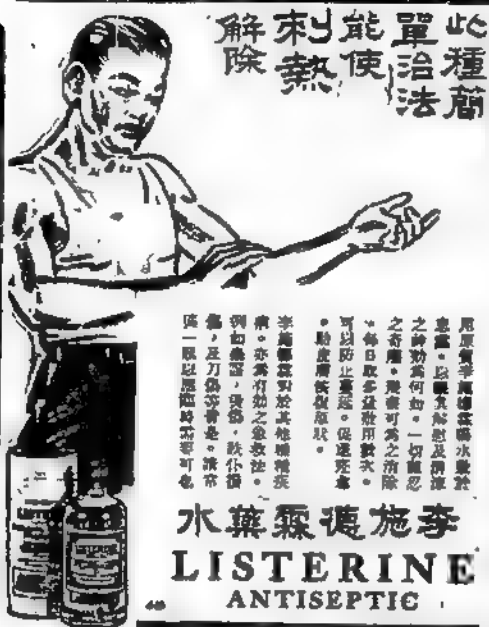 此種簡
單治法
能使
刺熱
解除
用原質李施德霖藥水敷於
患處。以觀其解慰及清涼
之神効為何如。一切難忍
之奇癢。可為之消除
。每日取多量敷用數次。
可以防止蔓延。促進
。助皮膚恢復原狀。
李施德霖對於其他種種疾
病。亦為有効之急救法。
例如傷，跌仆損
傷，及刀傷等皆是。請常
購一瓶以應臨時需要可也
李施德霖藥水
LISTERINE
ANTISEPTIC